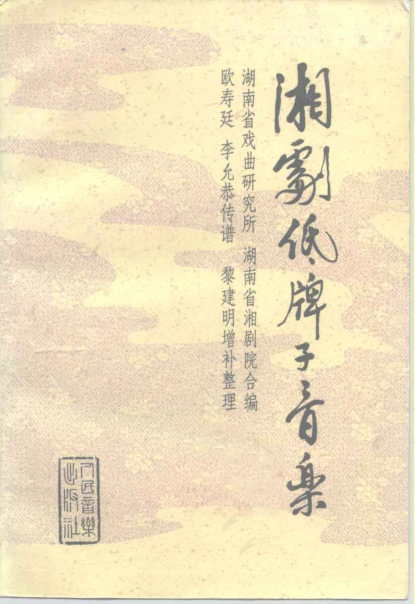 湘劇低牌子音樂
湖南省戏曲研究所 湖南省湘剧院合编
欧寿廷 李允恭传谱 黎建明增补整理
人民音樂
出版社